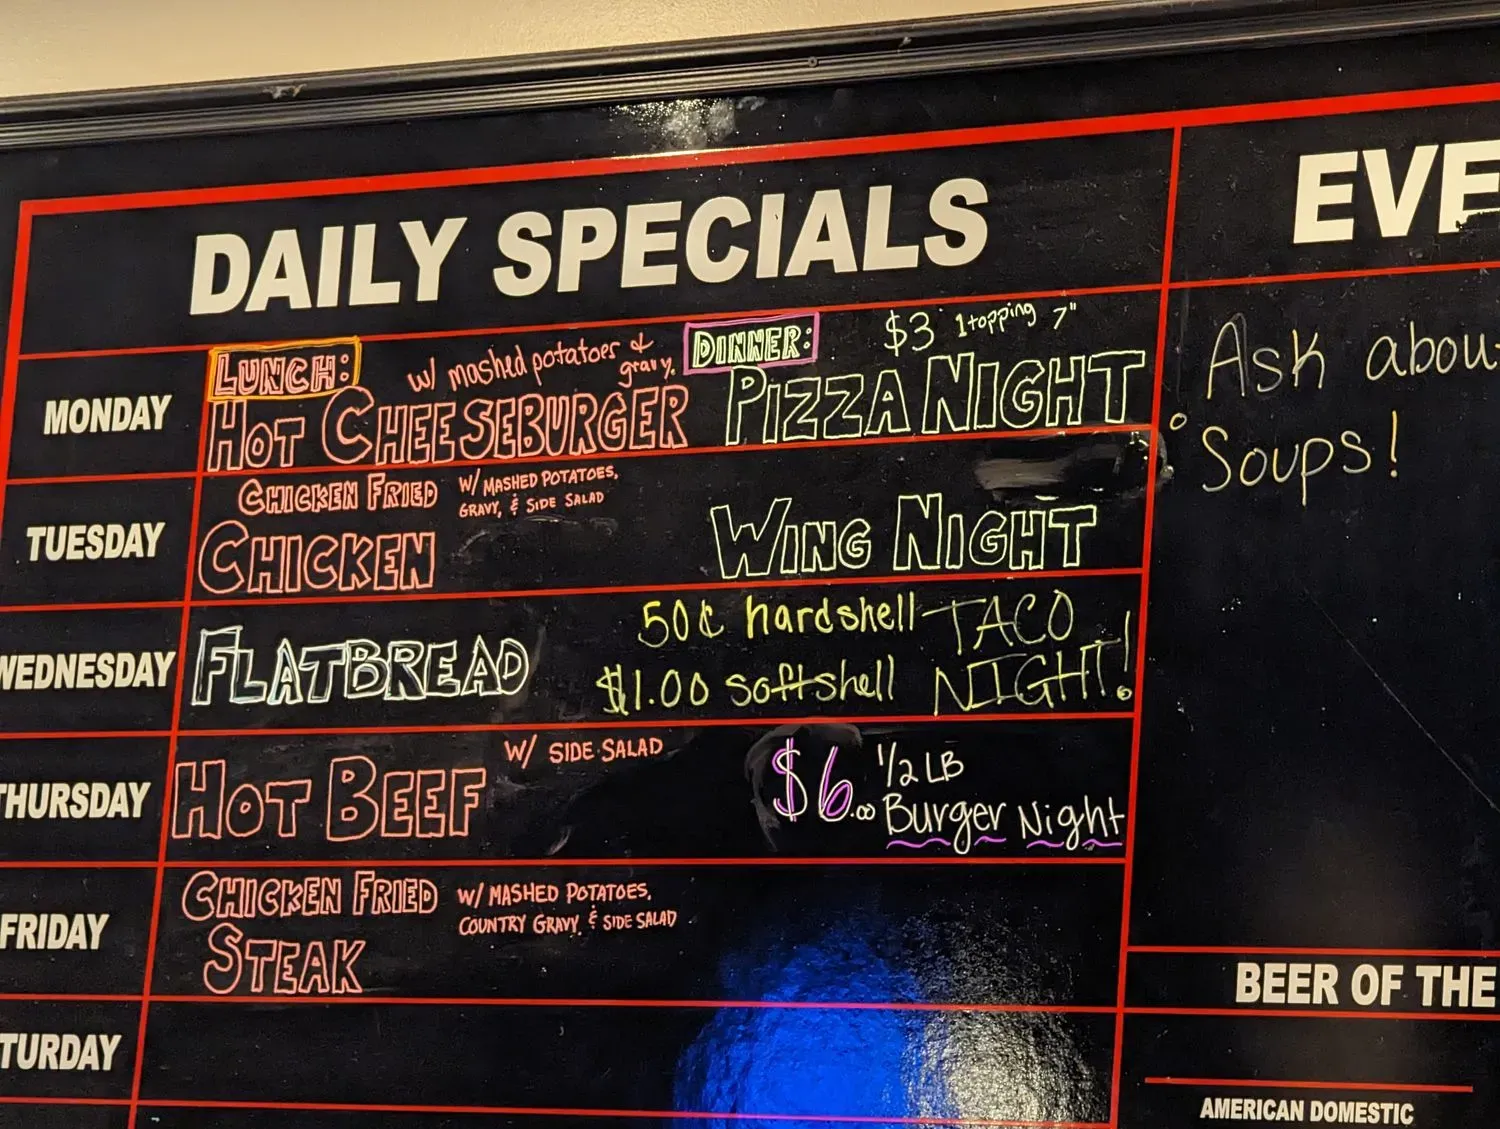 DAILY SPECIALS
MONDAY
LUNCH:
w/ mashed potatoes &
gravy.
HOT CHEESEBURGER
DINNER:
$3 1 topping 7"
PIZZA NIGHT
TUESDAY
CHICKEN FRIED
CHICKEN
W/ MASHED POTATOES,
GRAVY, & SIDE SALAD
WING NIGHT
WEDNESDAY
FLATBREAD
50¢ hardshell
$1.00 softshell
TACO
NIGHT!
THURSDAY
HOT BEEF
W/ SIDE SALAD
$6.00
1/2 LB
Burger Night
FRIDAY
CHICKEN FRIED
STEAK
W/ MASHED POTATOES,
COUNTRY GRAVY, & SIDE SALAD
TURDAY
EVE
Ask about
Soups!
BEER OF THE
AMERICAN DOMESTIC